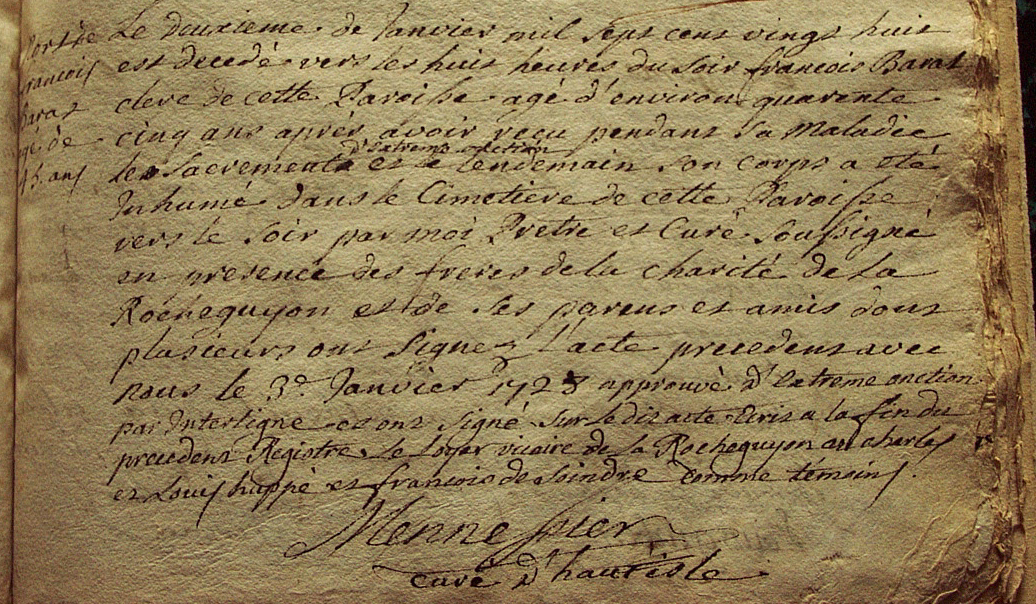 Mortuê
francois
Barat
agé de
45 ans
Le deuxieme de Janvier mil sept cent vingt huit
est decedé vers les huit heures du soir francois Barat
clerc de cette Paroisse agé d'environ quarente
cinq ans aprés avoir reçu pendant sa Maladie
d'extreme onction
les Sacrements et le lendemain son corps a eté
Inhumé dans le Cimetiere de cette Paroisse
vers le soir par moi Pretre et Curé Soussigné
en presence des freres de la charité de la
Rocheguyon et de ses parens et amis dont
plusieurs ont signez l'acte precedent avec
nous le 3e. Janvier 1728 approuvé d'extreme onction
par Interligne et ont signé sur ledit acte Ecrit a la fin du
precedent Registre le vicaire de la Rocheguyon charles
et Louis happé et francois de Soindre comme témoins.
Mennessier
curé d'hautisle